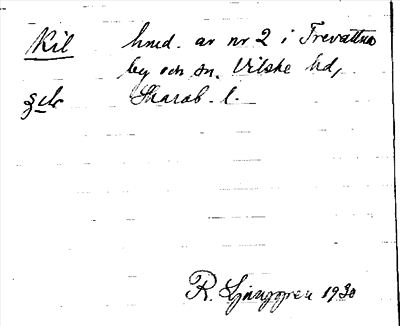 Kil hmd. av nr 2 i Trevattna
by och sn, Vilske hd,
Skarab. l.
R. Ljunggren 1930